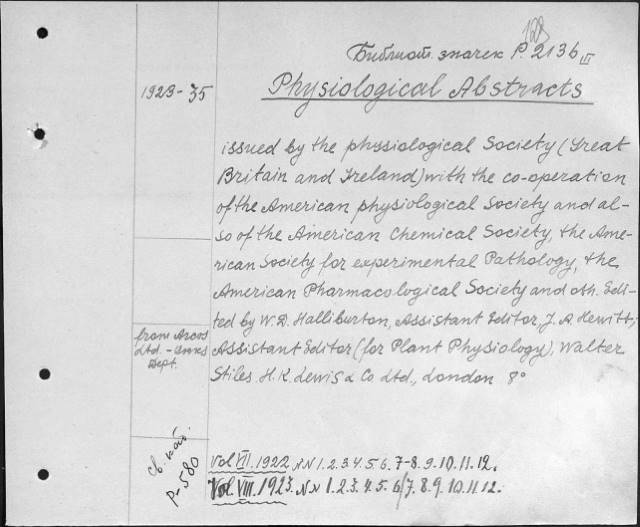 128
Библиот. значек P. 2136 III
1923-35
Physiological Abstracts
issued by the physiological Society (Great
Britain and Ireland) with the co-operation
of the American physiological Society and al-
so of the American Chemical Society, the Ame-
rican Society for experimental Pathology, the
American Pharmacological Society and oth. Edi-
ted by W.D. Halliburton, Assistant Editor, J. A. Hewitt,
from Arcos
Ltd. - Dept.
Assistant Editor (for Plant Physiology), Walter
Stiles. H. K. Lewis & Co Ltd., London 8°
св. каб.
P-580
Vol VII. 1922. NN 1. 2. 3. 4. 5. 6. 7-8. 9. 10. 11. 12.
Vol. VIII. 1923. NN 1. 2. 3. 4. 5. 6/7. 8. 9. 10. 11. 12.